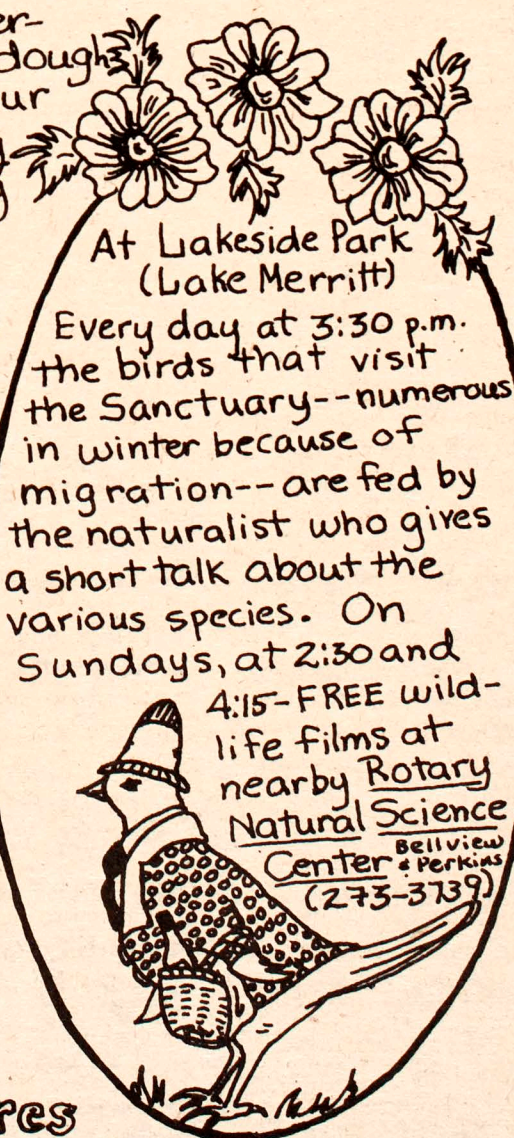 er-
dough
ur
g
At Lakeside Park
(Lake Merritt)
Every day at 3:30 p.m.
the birds that visit
the Sanctuary--numerous
in winter because of
migration--are fed by
the naturalist who gives
a short talk about the
various species. On
Sundays, at 2:30 and
4:15-FREE wild-
life films at
nearby Rotary
Natural Science
Center Bellview
& Perkins
(273-3739)
res